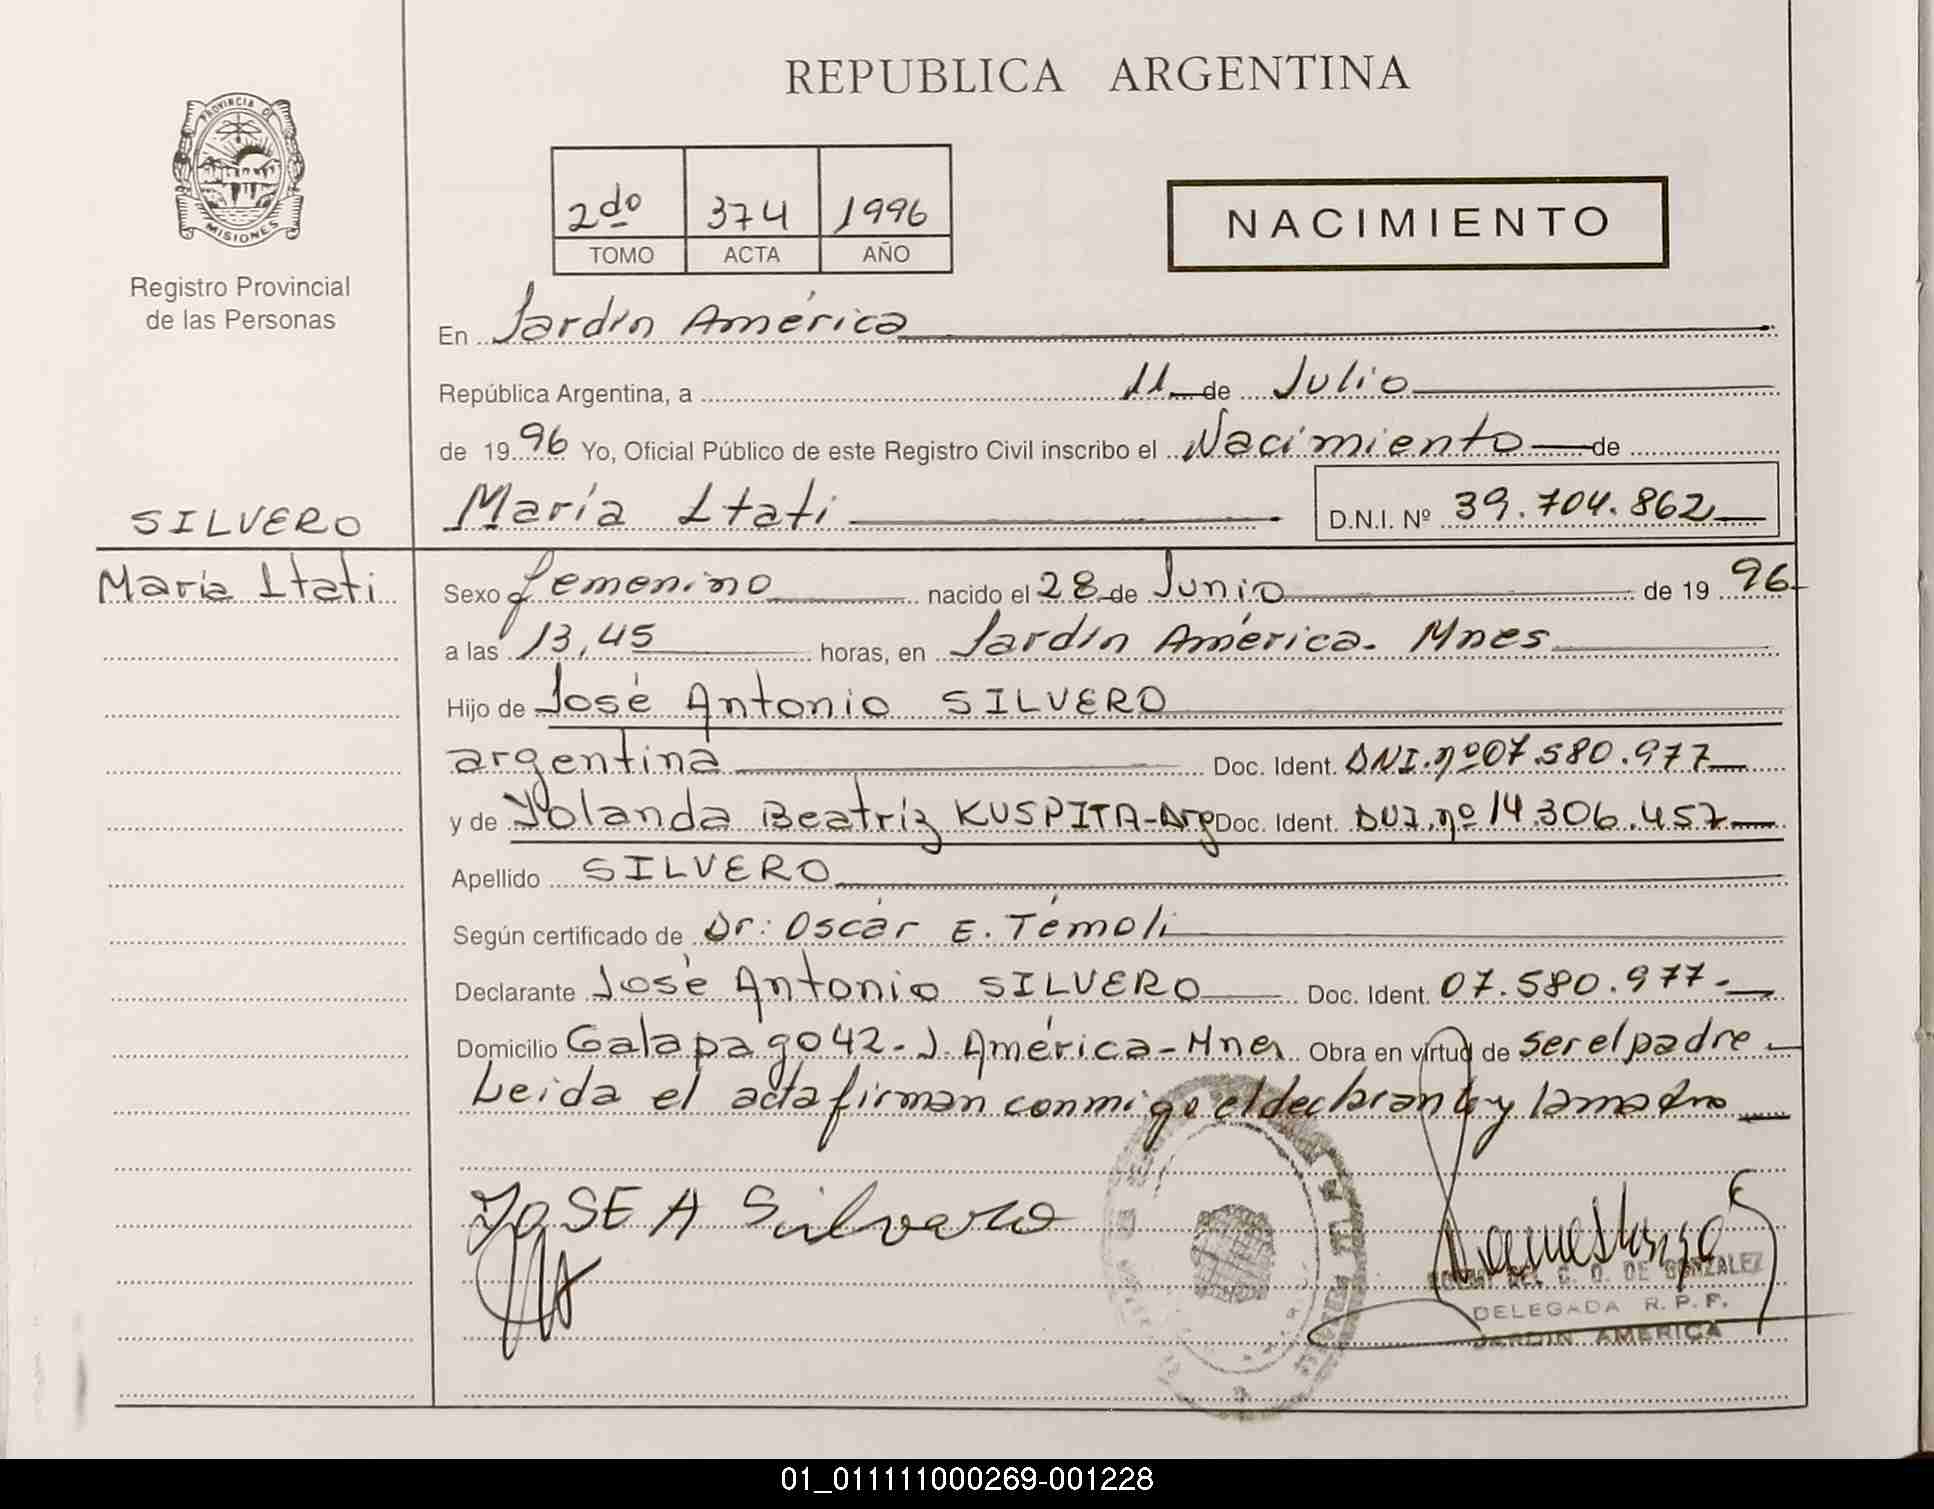 REPUBLICA ARGENTINA
PROVINCIA DE
MISIONES
Registro Provincial
de las Personas
2do 374 1996
TOMO ACTA AÑO
NACIMIENTO
En Jardín América
República Argentina, a 11 de Julio
de 1996 Yo, Oficial Público de este Registro Civil inscribo el Nacimiento de
María Itati D.N.I. Nº 39.704.862
SILVERO
María Itati
Sexo femenino nacido el 28 de Junio de 1996
a las 13,45 horas, en Jardín América. Mnes
Hijo de José Antonio SILVERO
argentina Doc. Ident. DNI.nº07.580.977
y de Yolanda Beatriz KUSPITA-Arg Doc. Ident. DUI.nº14.306.457
Apellido SILVERO
Según certificado de Dr: Oscar E. Témoli
Declarante José Antonio SILVERO Doc. Ident. 07.580.977.
Domicilio Galapago 42-J. América-Mnes Obra en virtud de ser el padre
Leida el acta firman conmigo el declarante y la madre
JOSE A Silvero
DEL C. O. DE GONZALEZ
DELEGADA R.P.F.
JARDIN AMERICA
01_011111000269-001228